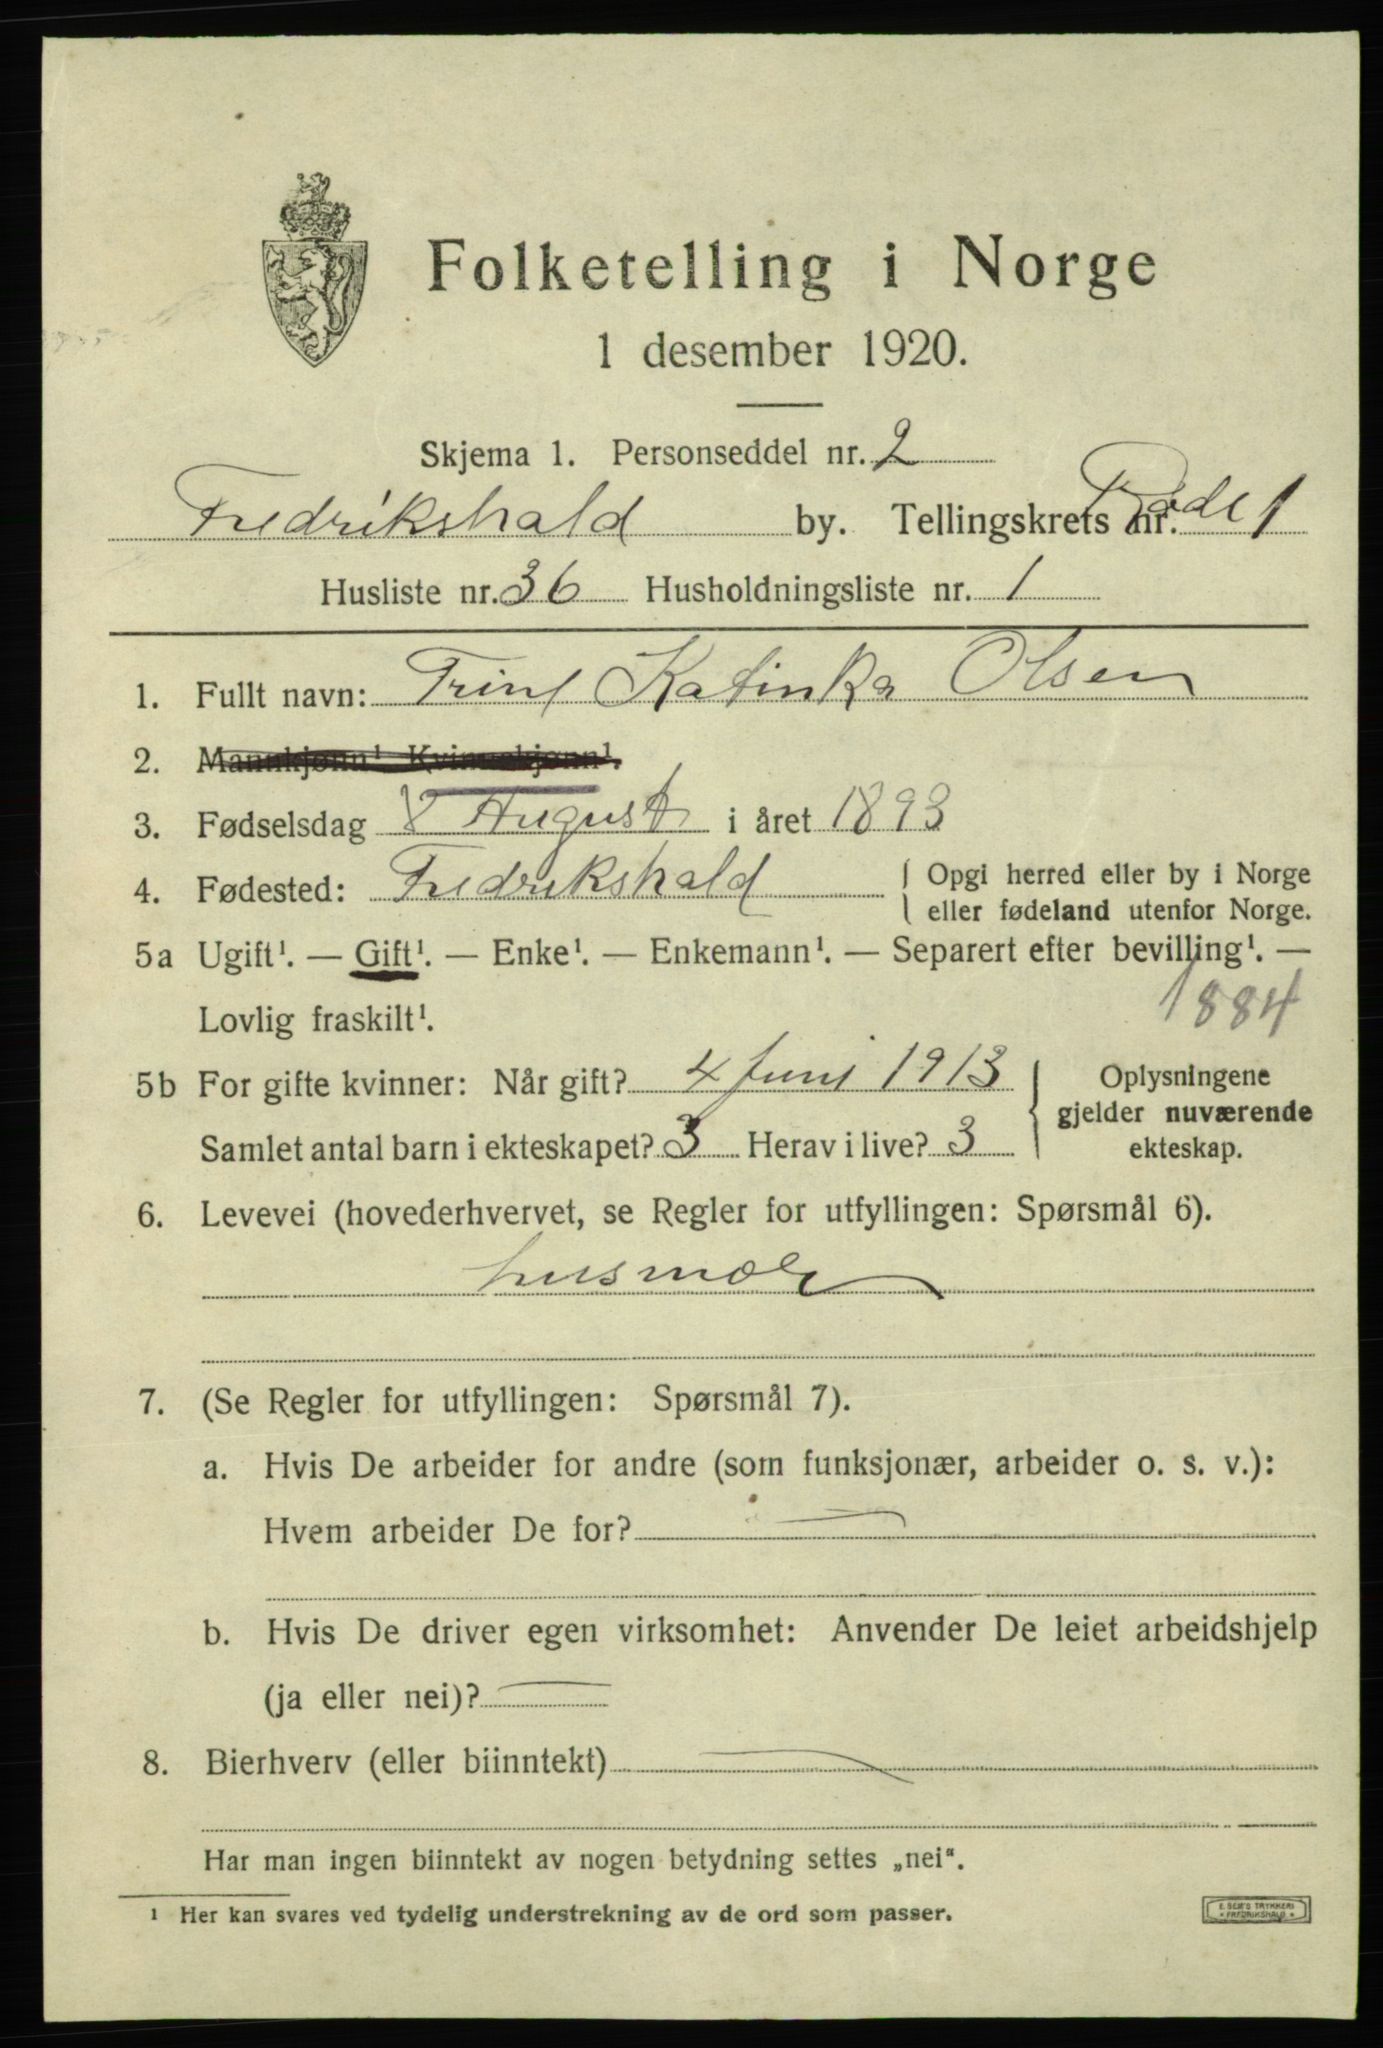 Folketelling i Norge
1 desember 1920.
Skjema 1. Personseddel nr. 2
Fredrikshald by. Tellingskrets nr. Rode 1
Husliste nr. 36 Husholdningsliste nr. 1
1. Fullt navn: Trine Katinka Olsen
2. Mannkjønn¹. Kvinnekjønn¹.
3. Fødselsdag 8 August i året 1893
4. Fødested: Fredrikshald { Opgi herred eller by i Norge
eller fødeland utenfor Norge.
5a Ugift¹. — Gift¹. — Enke¹. — Enkemann¹. — Separert efter bevilling¹. —
Lovlig fraskilt¹. 1884
5b For gifte kvinner: Når gift? 4 Juni 1913 { Oplysningene
gjelder nuværende
Samlet antal barn i ekteskapet? 3 Herav i live? 3 ekteskap.
6. Levevei (hovederhvervet, se Regler for utfyllingen: Spørsmål 6).
husmor
7. (Se Regler for utfyllingen: Spørsmål 7).
a. Hvis De arbeider for andre (som funksjonær, arbeider o. s. v.):
Hvem arbeider De for? —
b. Hvis De driver egen virksomhet: Anvender De leiet arbeidshjelp
(ja eller nei)? —
8. Bierhverv (eller biinntekt) —
Har man ingen biinntekt av nogen betydning settes „nei“.
¹ Her kan svares ved tydelig understrekning av de ord som passer.
E. SEM'S TRYKKERI
* FREDRIKSHALD *